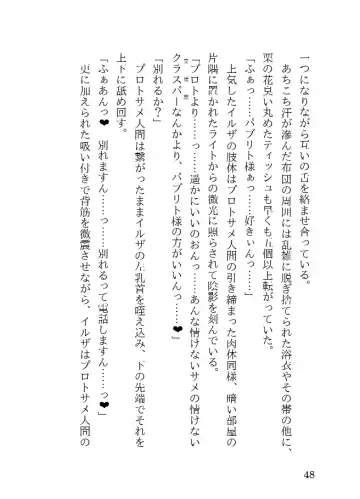 一つになりながら互いの舌を絡ませ合っている。
　あちこち汗が滲んだ布団の周囲には乱雑に脱ぎ捨てられた浴衣やその帯の他に、
栗の花臭い丸めたティッシュも早くも五個以上転がっていた。
「ふぁっ……パブリト様ぁっ……好きぃんっ……」
　上気したイルザの肢体はプロトサメ人間の引き締まった肉体同様、暗い部屋の
片隅に置かれたライトからの微光に照らされて陰影を刻んでいる。
「プロトより……っ……遥かにいいのおんっ……あんな情けないサメの情けない
クラスパーなんかより、パブリト様の方がいいんっ……❤」
「別れるか？」
　プロトサメ人間は繋がったままイルザの左乳首を咥え込み、下の先端でそれを
上下に舐め回す。
「ふぁあんっ❤　別れますん……っ……別れるって電話しますん……っ❤」
　更に加えられた吸い付きで背筋を微震させながら、イルザはプロトサメ人間の
48